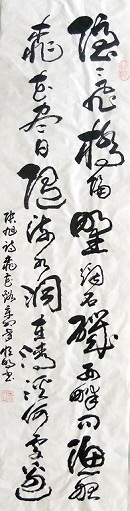 隐隐飞桥隔野烟石矶西畔问渔船
桃花尽日随流水洞在清溪何处边
张旭诗桃花溪